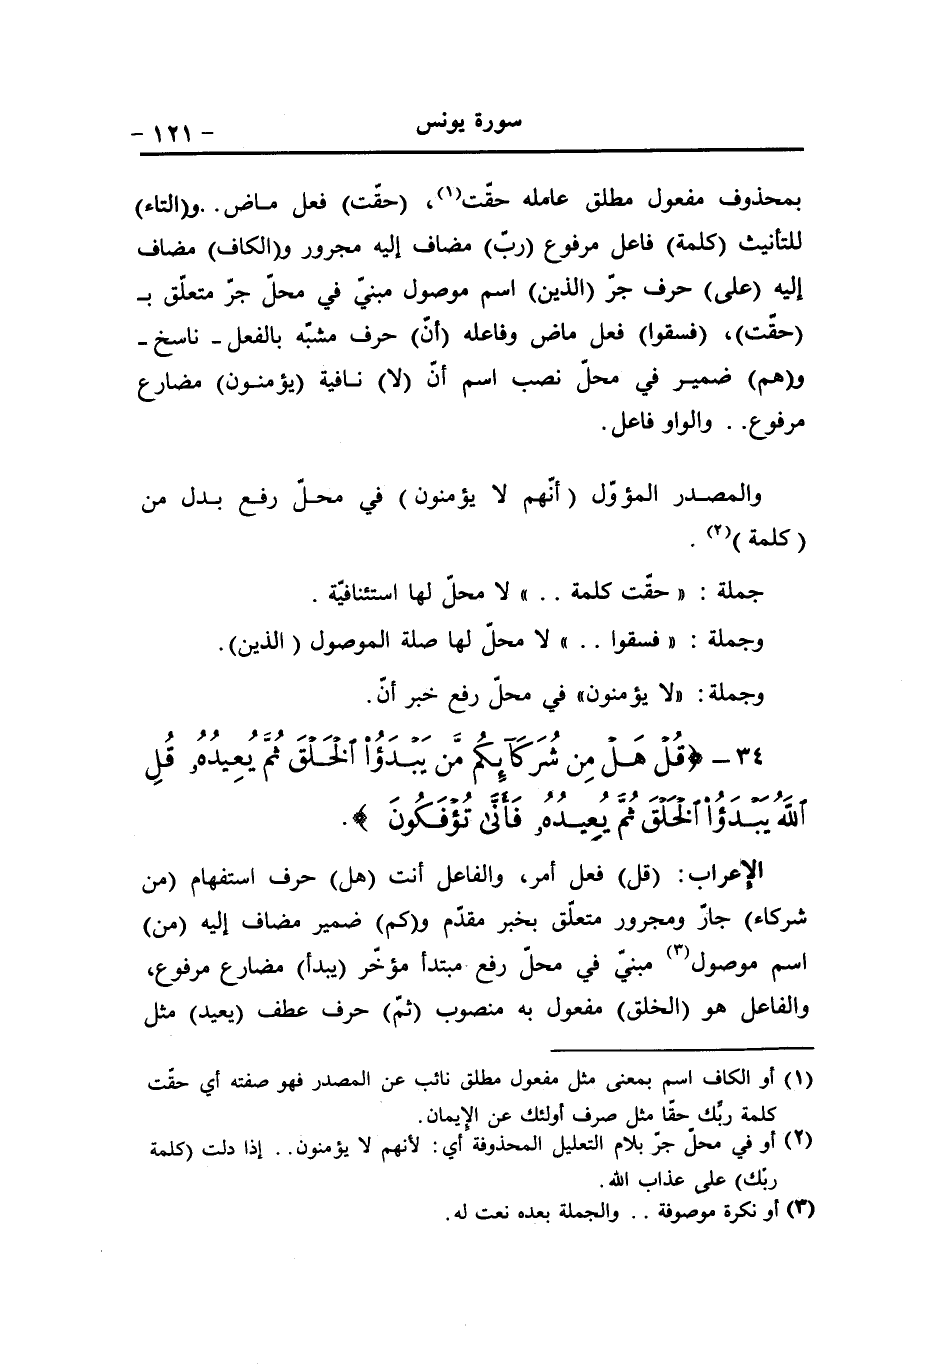 سورة يونس
- ١٢١ -
بمحذوف مفعول مطلق عامله حقّت(١)، (حقّت) فعل ماض. .و(التاء)
للتأنيث (كلمة) فاعل مرفوع (ربّ) مضاف إليه مجرور و(الكاف) مضاف
إليه (على) حرف جرّ (الذين) اسم موصول مبنيّ في محلّ جرّ متعلّق بـ
(حقّت)، (فسقوا) فعل ماض وفاعله (أنّ) حرف مشبّه بالفعل - ناسخ -
و(هم) ضمير في محلّ نصب اسم أنّ (لا) نافية (يؤمنون) مضارع
مرفوع. . والواو فاعل.
والمصدر المؤوّل (أنّهم لا يؤمنون) في محلّ رفع بدل من
(كلمة)(٢) .
جملة : « حقّت كلمة . . » لا محلّ لها استئنافيّة .
وجملة : « فسقوا . . » لا محلّ لها صلة الموصول ( الذين).
وجملة: «لا يؤمنون» في محلّ رفع خبر أنّ.
٣٤ - ﴿قُلْ هَلْ مِن شُرَكَآئِكُم مَّن يَبْدَؤُا۟ ٱلْخَلْقَ ثُمَّ يُعِيدُهُۥ قُلِ
ٱللَّهُ يَبْدَؤُا۟ ٱلْخَلْقَ ثُمَّ يُعِيدُهُۥ فَأَنَّىٰ تُؤْفَكُونَ ﴾.
الإعراب: (قل) فعل أمر، والفاعل أنت (هل) حرف استفهام (من
شركاء) جارّ ومجرور متعلّق بخبر مقدّم و(كم) ضمير مضاف إليه (من)
اسم موصول(٣) مبنيّ في محلّ رفع مبتدأ مؤخّر (يبدأ) مضارع مرفوع،
والفاعل هو (الخلق) مفعول به منصوب (ثمّ) حرف عطف (يعيد) مثل
(١) أو الكاف اسم بمعنى مثل مفعول مطلق نائب عن المصدر فهو صفته أي حقّت
كلمة ربّك حقّا مثل صرف أولئك عن الإيمان.
(٢) أو في محلّ جرّ بلام التعليل المحذوفة أي: لأنهم لا يؤمنون. . إذا دلت (كلمة
ربّك) على عذاب الله.
(٣) أو نكرة موصوفة . . والجملة بعده نعت له.